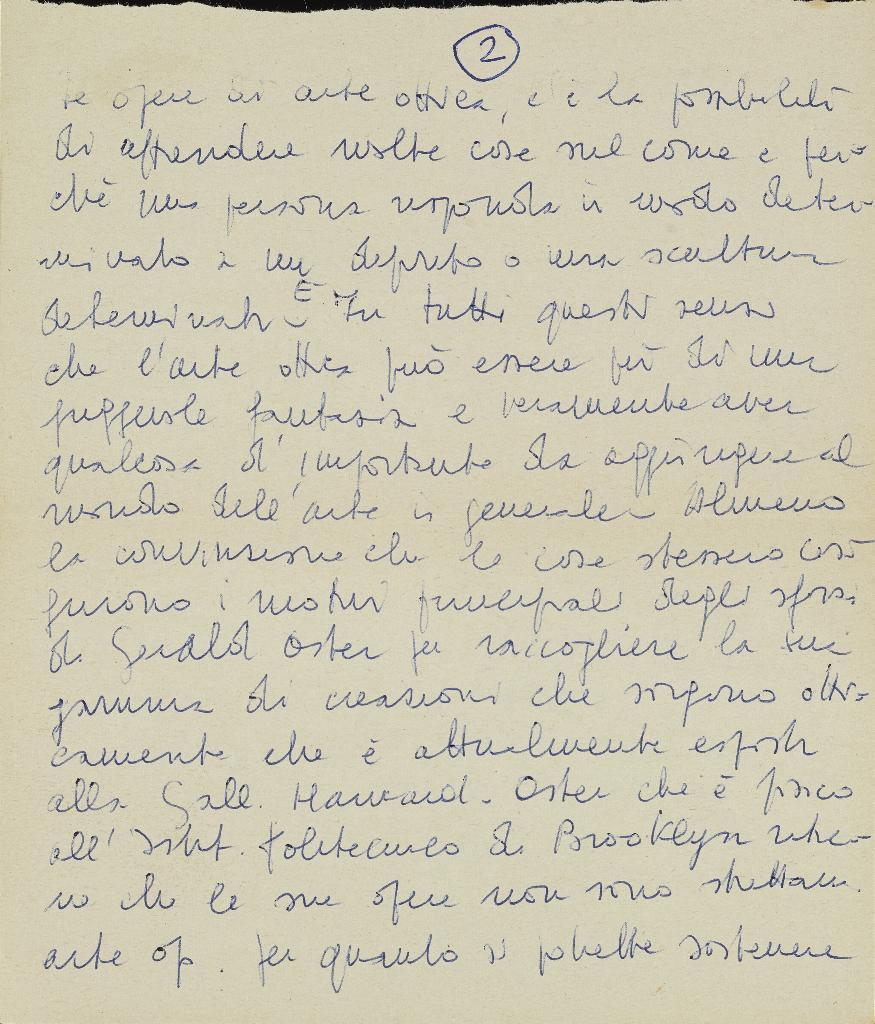 2
te opere di arte ottica, c'è la possibilità
di apprendere molte cose sul come e per=
chè una persona risponda in modo deter-
minato a un dipinto o una scultura
determinati. È in tutti questi sensi
che l'arte ottica può essere più di una
fuggevole fantasia e veramente aver
qualcosa d'importante da aggiungere al
mondo dell'arte in generale. Almeno
la convinzione che le cose stessero così
furono i motivi principali degli sforzi
di Gerald Oster per raccogliere la sua
gamma di creazioni che sorgono otti=
camente che è attualmente esposta
alla Gall. Howard. Oster che è fisico
all' Istit. Politecnico di Brooklyn ritie-
ne che le sue opere non sono strettam.
arte op. Per quanto si potrebbe sostenere